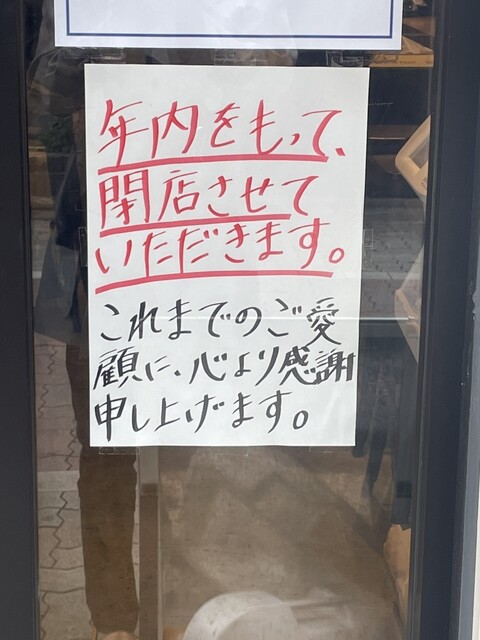 年内をもって、
閉店させて
いただきます。
これまでのご愛
顧に、心より感謝
申し上げます。